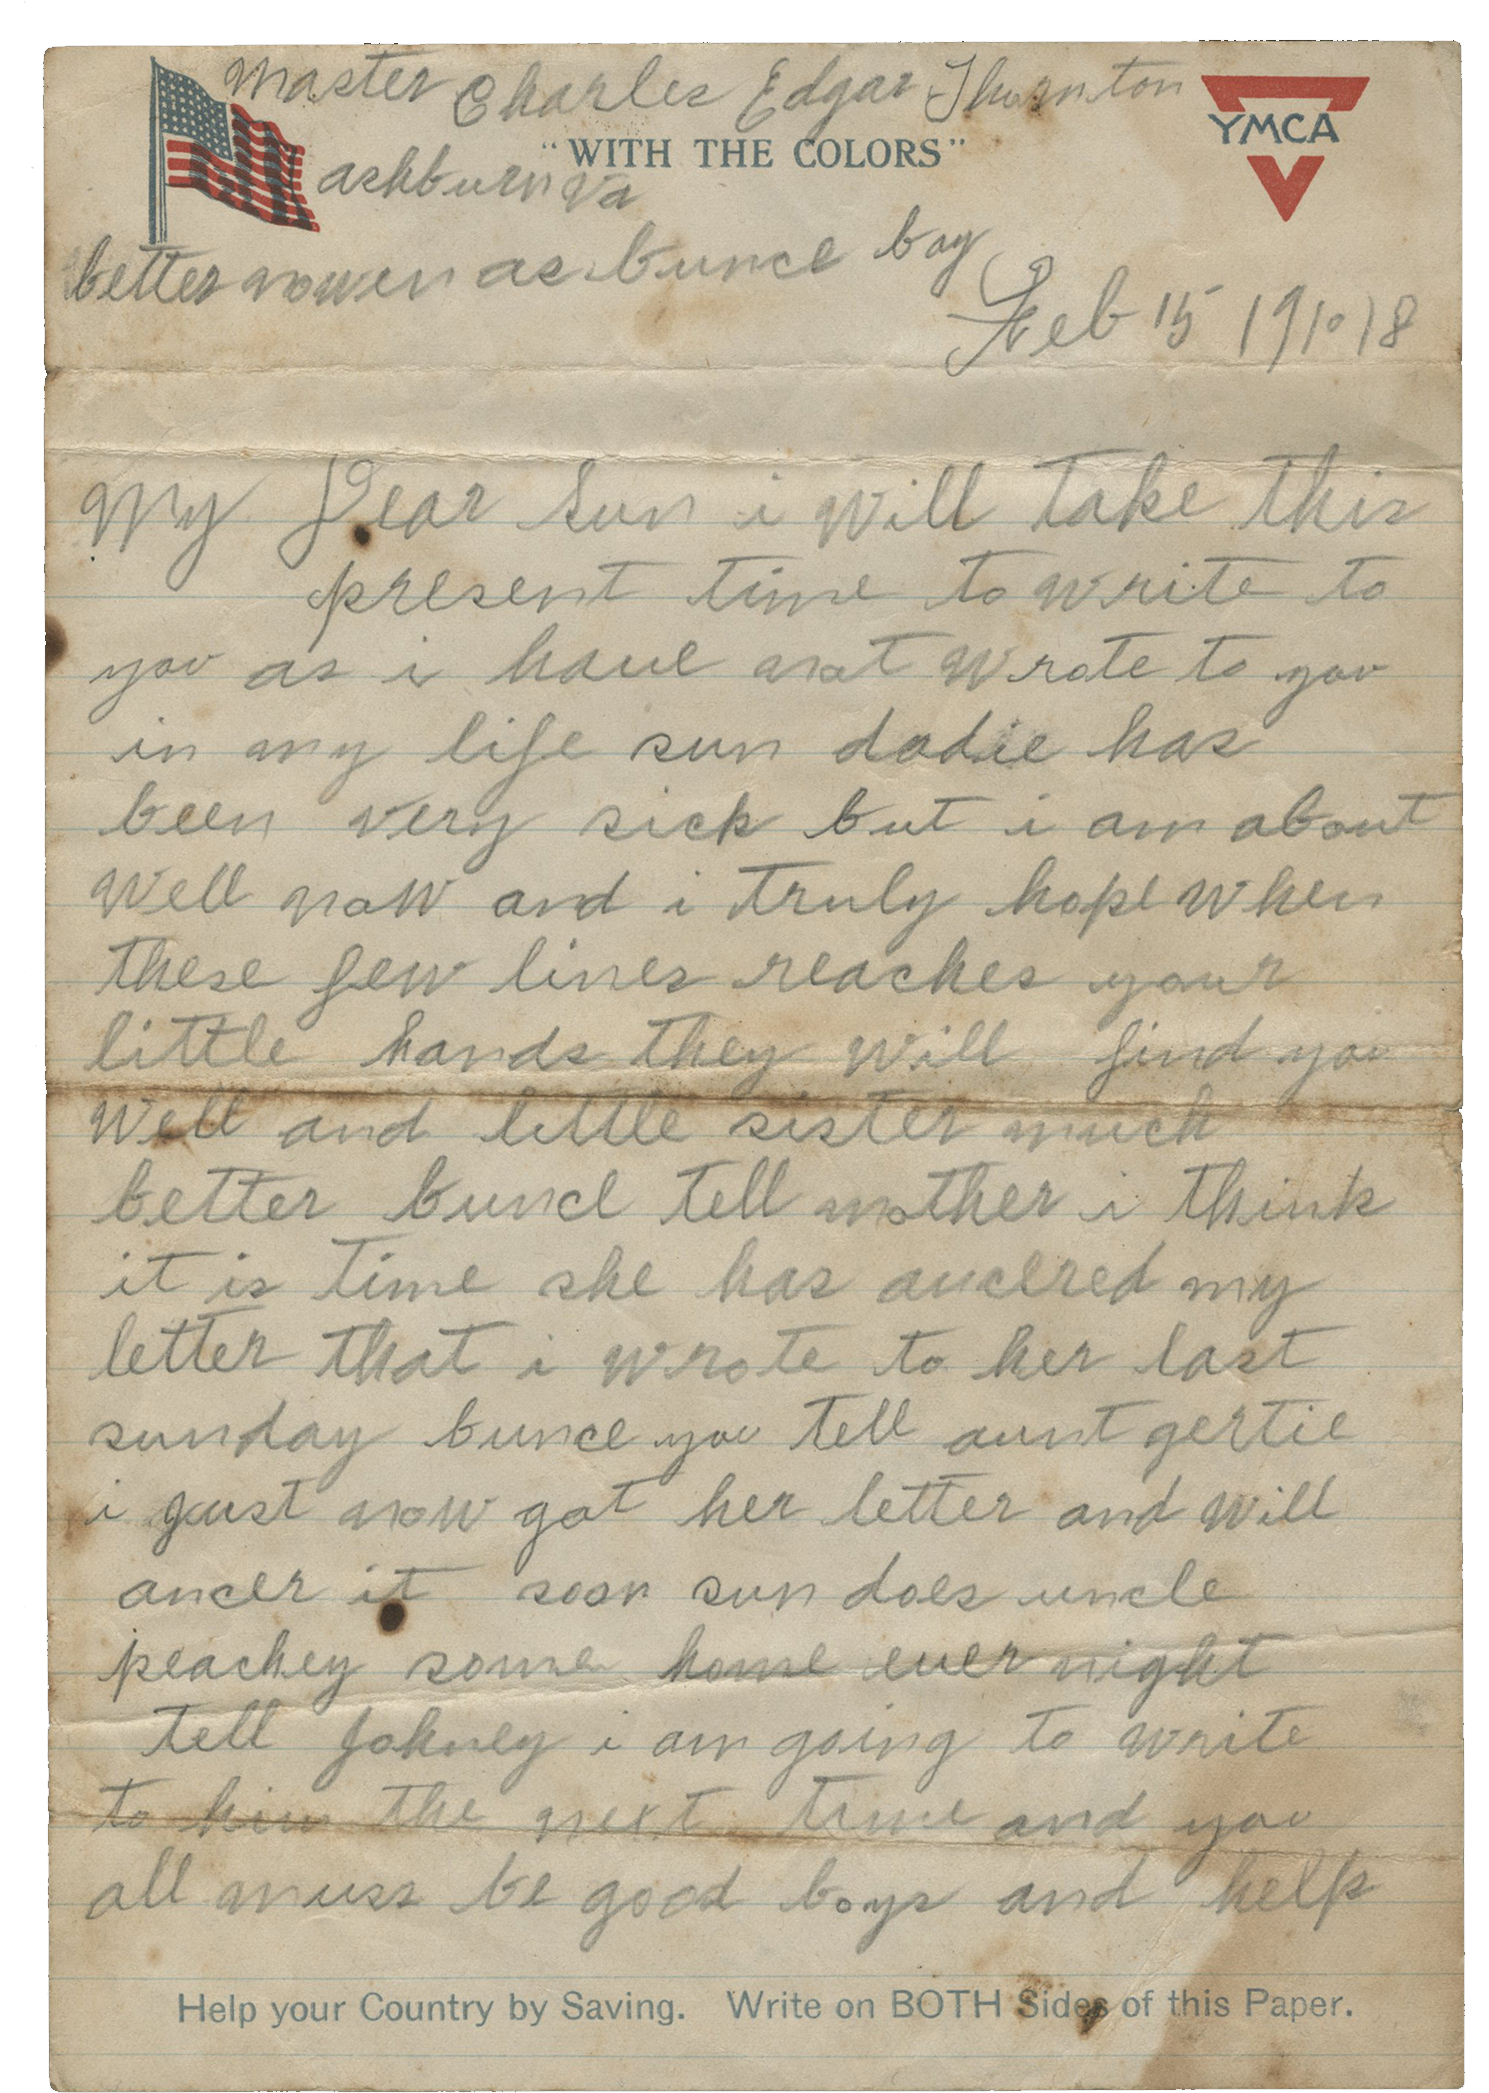 Master Charles Edgar Thornton
YMCA
"WITH THE COLORS"
ashburn va
better nowen as bunce boy
Feb 15 1918
My Dear Sun i will take this
present time to write to
you as i have not wrote to you
in my life sun dadie has
been very sick but i am about
well now and i truly hope when
these few lines reaches your
little hands they will find you
well and little sister much
better bunce tell mother i think
it is time she has ancered my
letter that i wrote to her last
sunday bunce you tell aunt gertie
i just now got her letter and will
ancer it soon sun does uncle
peachey some home ever night
tell Johney i am going to write
to him the next time and you
all muss be good boys and help
Help your Country by Saving. Write on BOTH Sides of this Paper.